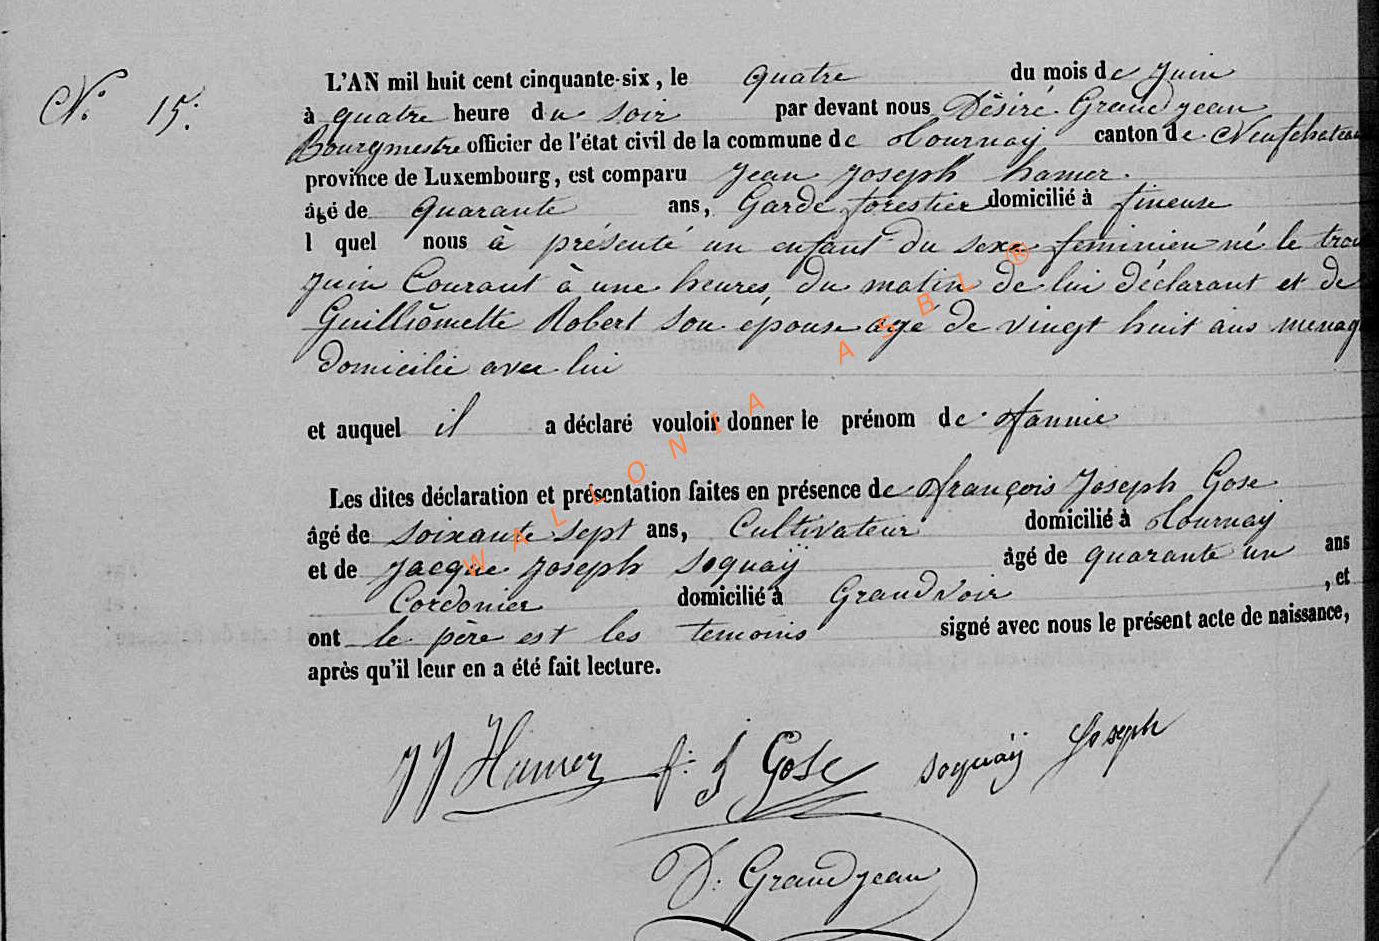 N° 15.
L'AN mil huit cent cinquante-six, le quatre du mois de Juin
à quatre heure du soir par devant nous Désiré Grandjean
Bourgmestre officier de l'état civil de la commune de Tournay canton de Neufchateau
province de Luxembourg, est comparu Jean Joseph hamer.
âgé de quarante ans, Garde forestier domicilié à fineuse
l quel nous à présenté un enfant du sexe feminien né le trois
Juin Courant à une heures du matin de lui déclarant et de
Guilliomette Robert son épouse agé de vingt huit ans menag
domicilié avec lui
et auquel il a déclaré vouloir donner le prénom de fannie
Les dites déclaration et présentation faites en présence de françois Joseph Gose
âgé de soixante sept ans, Cultivateur domicilié à Tournay
et de Jacque Joseph Soquaÿ âgé de quarante un ans
Cordonier domicilié à Grandvoir , et
ont le père est les temoins signé avec nous le présent acte de naissance,
après qu'il leur en a été fait lecture.
JJ Hamer f: J Gose soquaÿ Joseph
D: Grandjean
WALLONIA ASBL ®